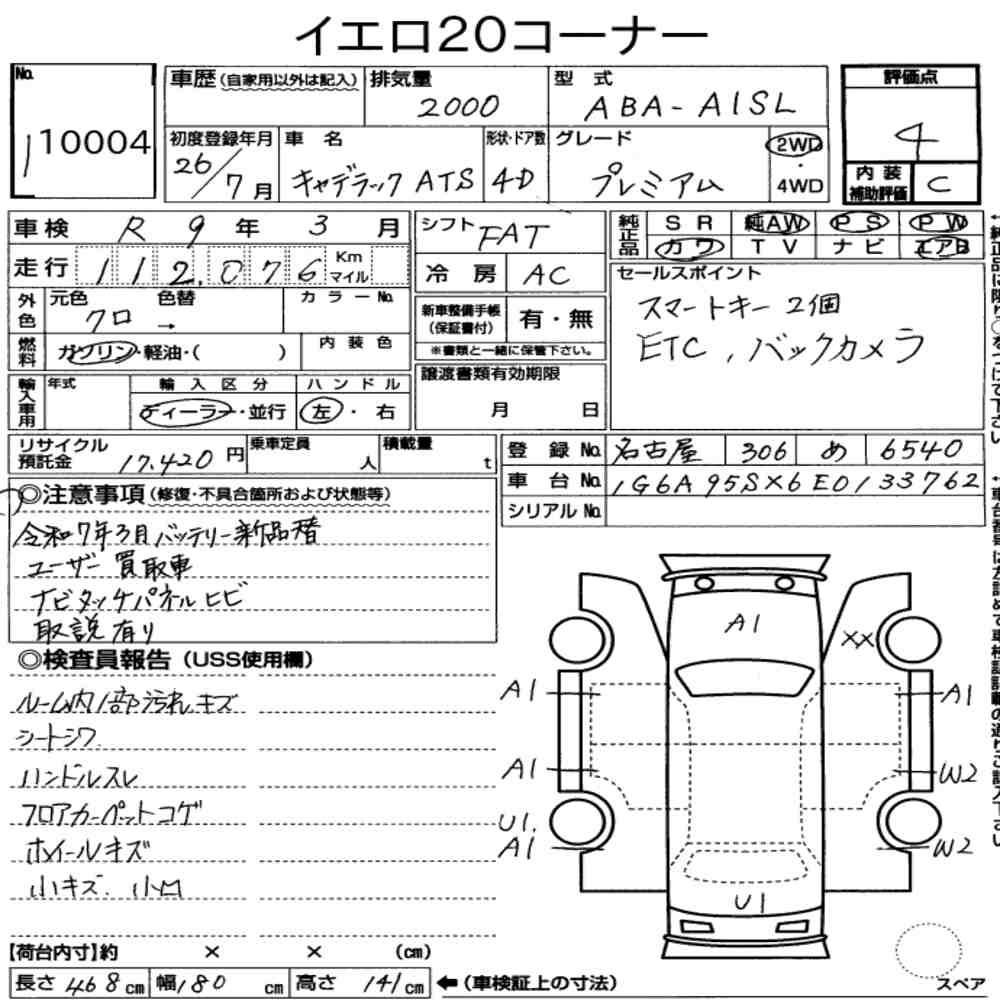 イエロ20コーナー
No. 110004
車歴(自家用以外は記入)
排気量 2000
型式 ABA-A1SL
評価点 4
初度登録年月 26/7月
車名 キャデラック ATS
形状・ドア数 4D
グレード プレミアム
2WD・4WD
内装補助評価 C
車検 R 9年 3月
シフト FAT
純正品 SR 純AW PS PW
カワ TV ナビ エアB
走行 112,076 Km マイル
冷房 AC
セールスポイント
スマートキー 2個
ETC, バックカメラ
外色 元色 クロ → 色替 カラーNo.
新車整備手帳(保証書付) 有・無
※書類と一緒に保管下さい。
燃料 ガソリン・軽油・( ) 内装色
輸入車用 年式 輸入区分 ハンドル
ディーラー・並行 左・右
譲渡書類有効期限
月 日
リサイクル預託金 17,420円
乗車定員 人
積載量 t
登録No. 名古屋 306 め 6540
車台No. 1G6A95SX6E0133762
シリアルNo.
◎注意事項(修復・不具合箇所および状態等)
令和7年3月バッテリー新品替
ユーザー買取車
ナビタッチパネルヒビ
取説有り
◎検査員報告(USS使用欄)
ルーム内1部汚れ キズ
シートシワ
ハンドルスレ
フロアカーペットコゲ
ホイールキズ
小キズ. 小凹
A1
XX
A1 A1
A1 W2
U1.
A1 W2
U1
【荷台内寸】約 × × (cm)
長さ 468cm 幅 180cm 高さ 141cm ←(車検証上の寸法)
スペア